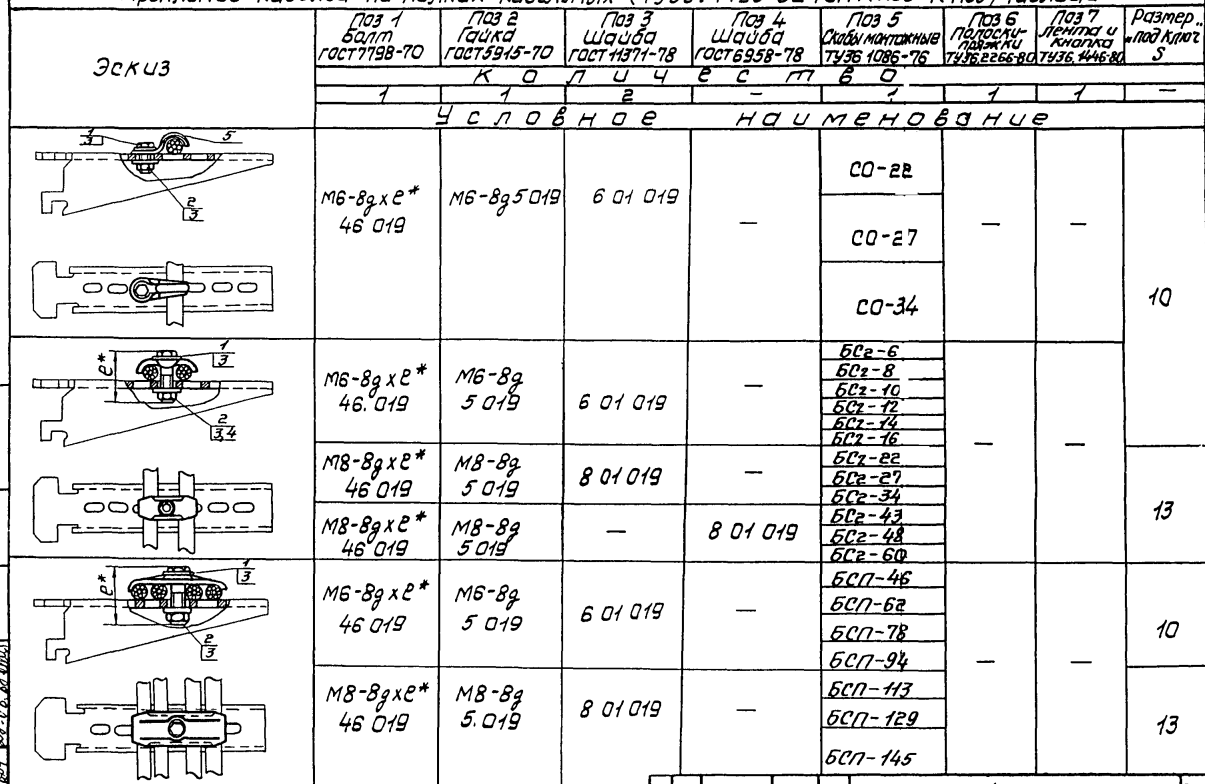 Эскиз
Поз 1 Болт ГОСТ7798-70
Поз 2 Гайка ГОСТ5915-70
Поз 3 Шайба ГОСТ11371-78
Поз 4 Шайба ГОСТ6958-78
Поз 5 Скобы монтажные ТУ36 1086-76
Поз 6 Полоски-пряжки ТУ36.2266-80
Поз 7 Лента и кнопка ТУ36.1446-80
Размер „под ключ" S
Количество
1 1 2 — 1 1 1 —
Условное наименование
1
3
5
2
3
М6-8g x ℓ* 46 019
М6-8g 5 019
6 01 019
—
СО-22
СО-27
СО-34
—
—
10
ℓ*
1
3
2
3,4
М6-8g x ℓ* 46.019
М6-8g 5 019
6 01 019
—
БС2-6
БС2-8
БС2-10
БС2-12
БС2-14
БС2-16
—
—
М8-8g x ℓ* 46 019
М8-8g 5 019
8 01 019
—
БС2-22
БС2-27
БС2-34
13
М8-8g x ℓ* 46 019
М8-8g 5 019
—
8 01 019
БС2-43
БС2-48
БС2-60
ℓ*
1
3
2
3
М6-8g x ℓ* 46 019
М6-8g 5 019
6 01 019
—
БСП-46
БСП-62
БСП-78
БСП-94
—
—
10
М8-8g x ℓ* 46 019
М8-8g 5.019
8 01 019
—
БСП-113
БСП-129
БСП-145
13